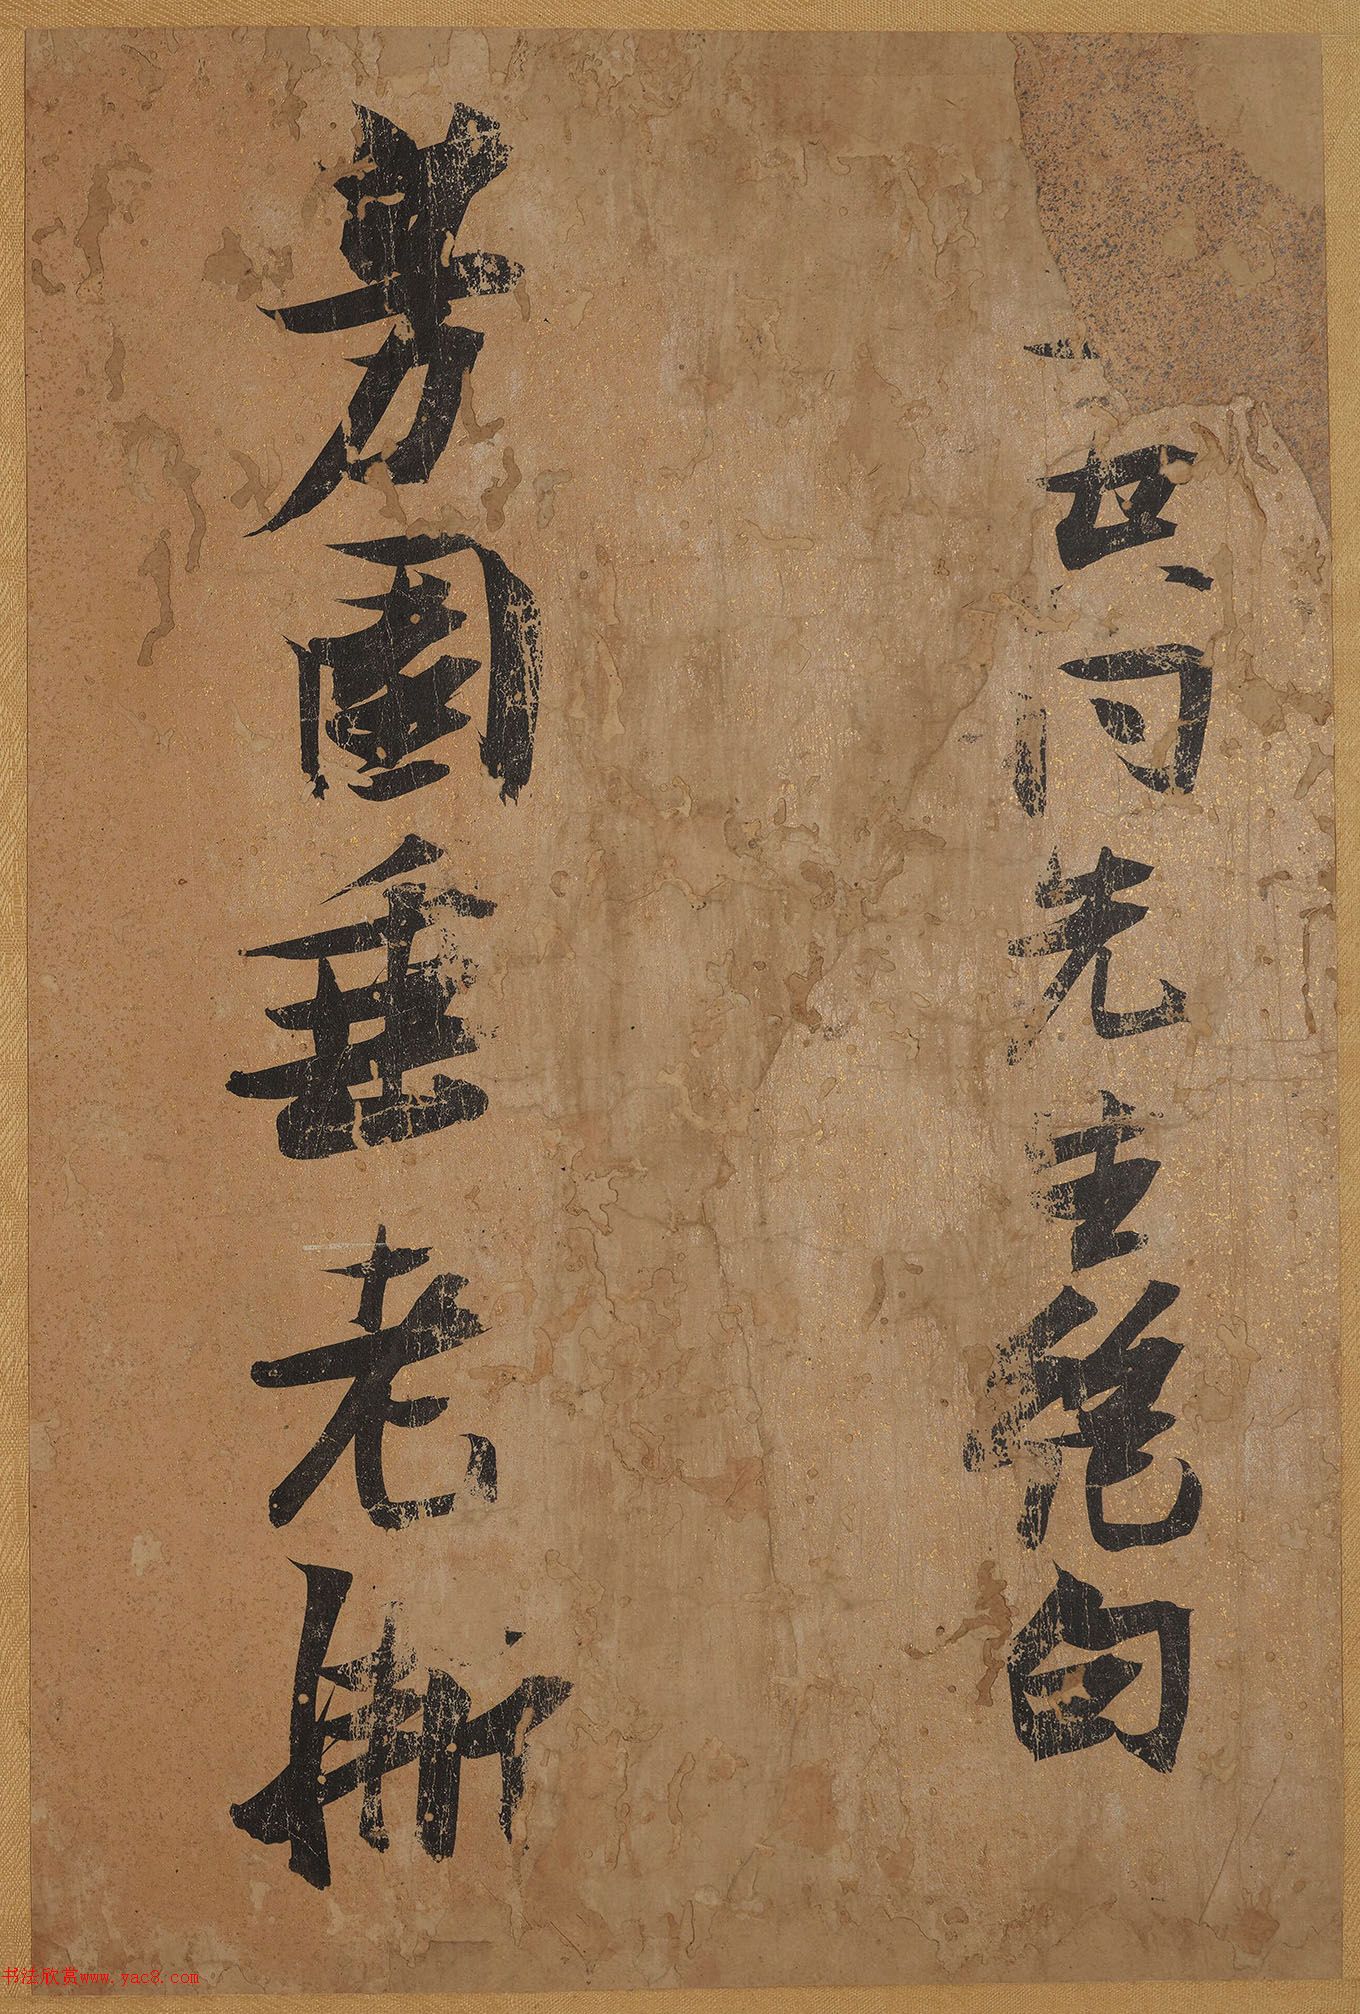 門先生絕句
芳園垂老
书法欣赏www.yac8.com